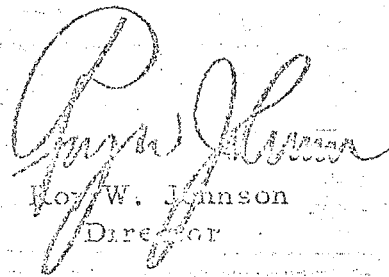 Roy W. Johnson
Roy W. Johnson
Director